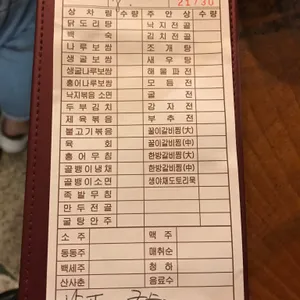 21730
상차림 수량 주안상 수량
닭도리탕 낙지전골
백숙 김치전골
나루보쌈 조개탕
생굴보쌈 새우탕
생굴나루보쌈 해물파전
홍어나루보쌈 모듬전
낙지볶음 소면 굴전
두부김치 감자전
제육볶음 부추전
불고기볶음 꿀이갈비찜(大)
육회 꿀이갈비찜(中)
홍어무침 한방갈비찜(大)
골뱅이냉채 한방갈비찜(中)
골뱅이소면 생야채도토리묵
족발무침
만두전골
굴탕안주
소주 맥주
동동주 매취순
백세주 청하
산사춘 음료수